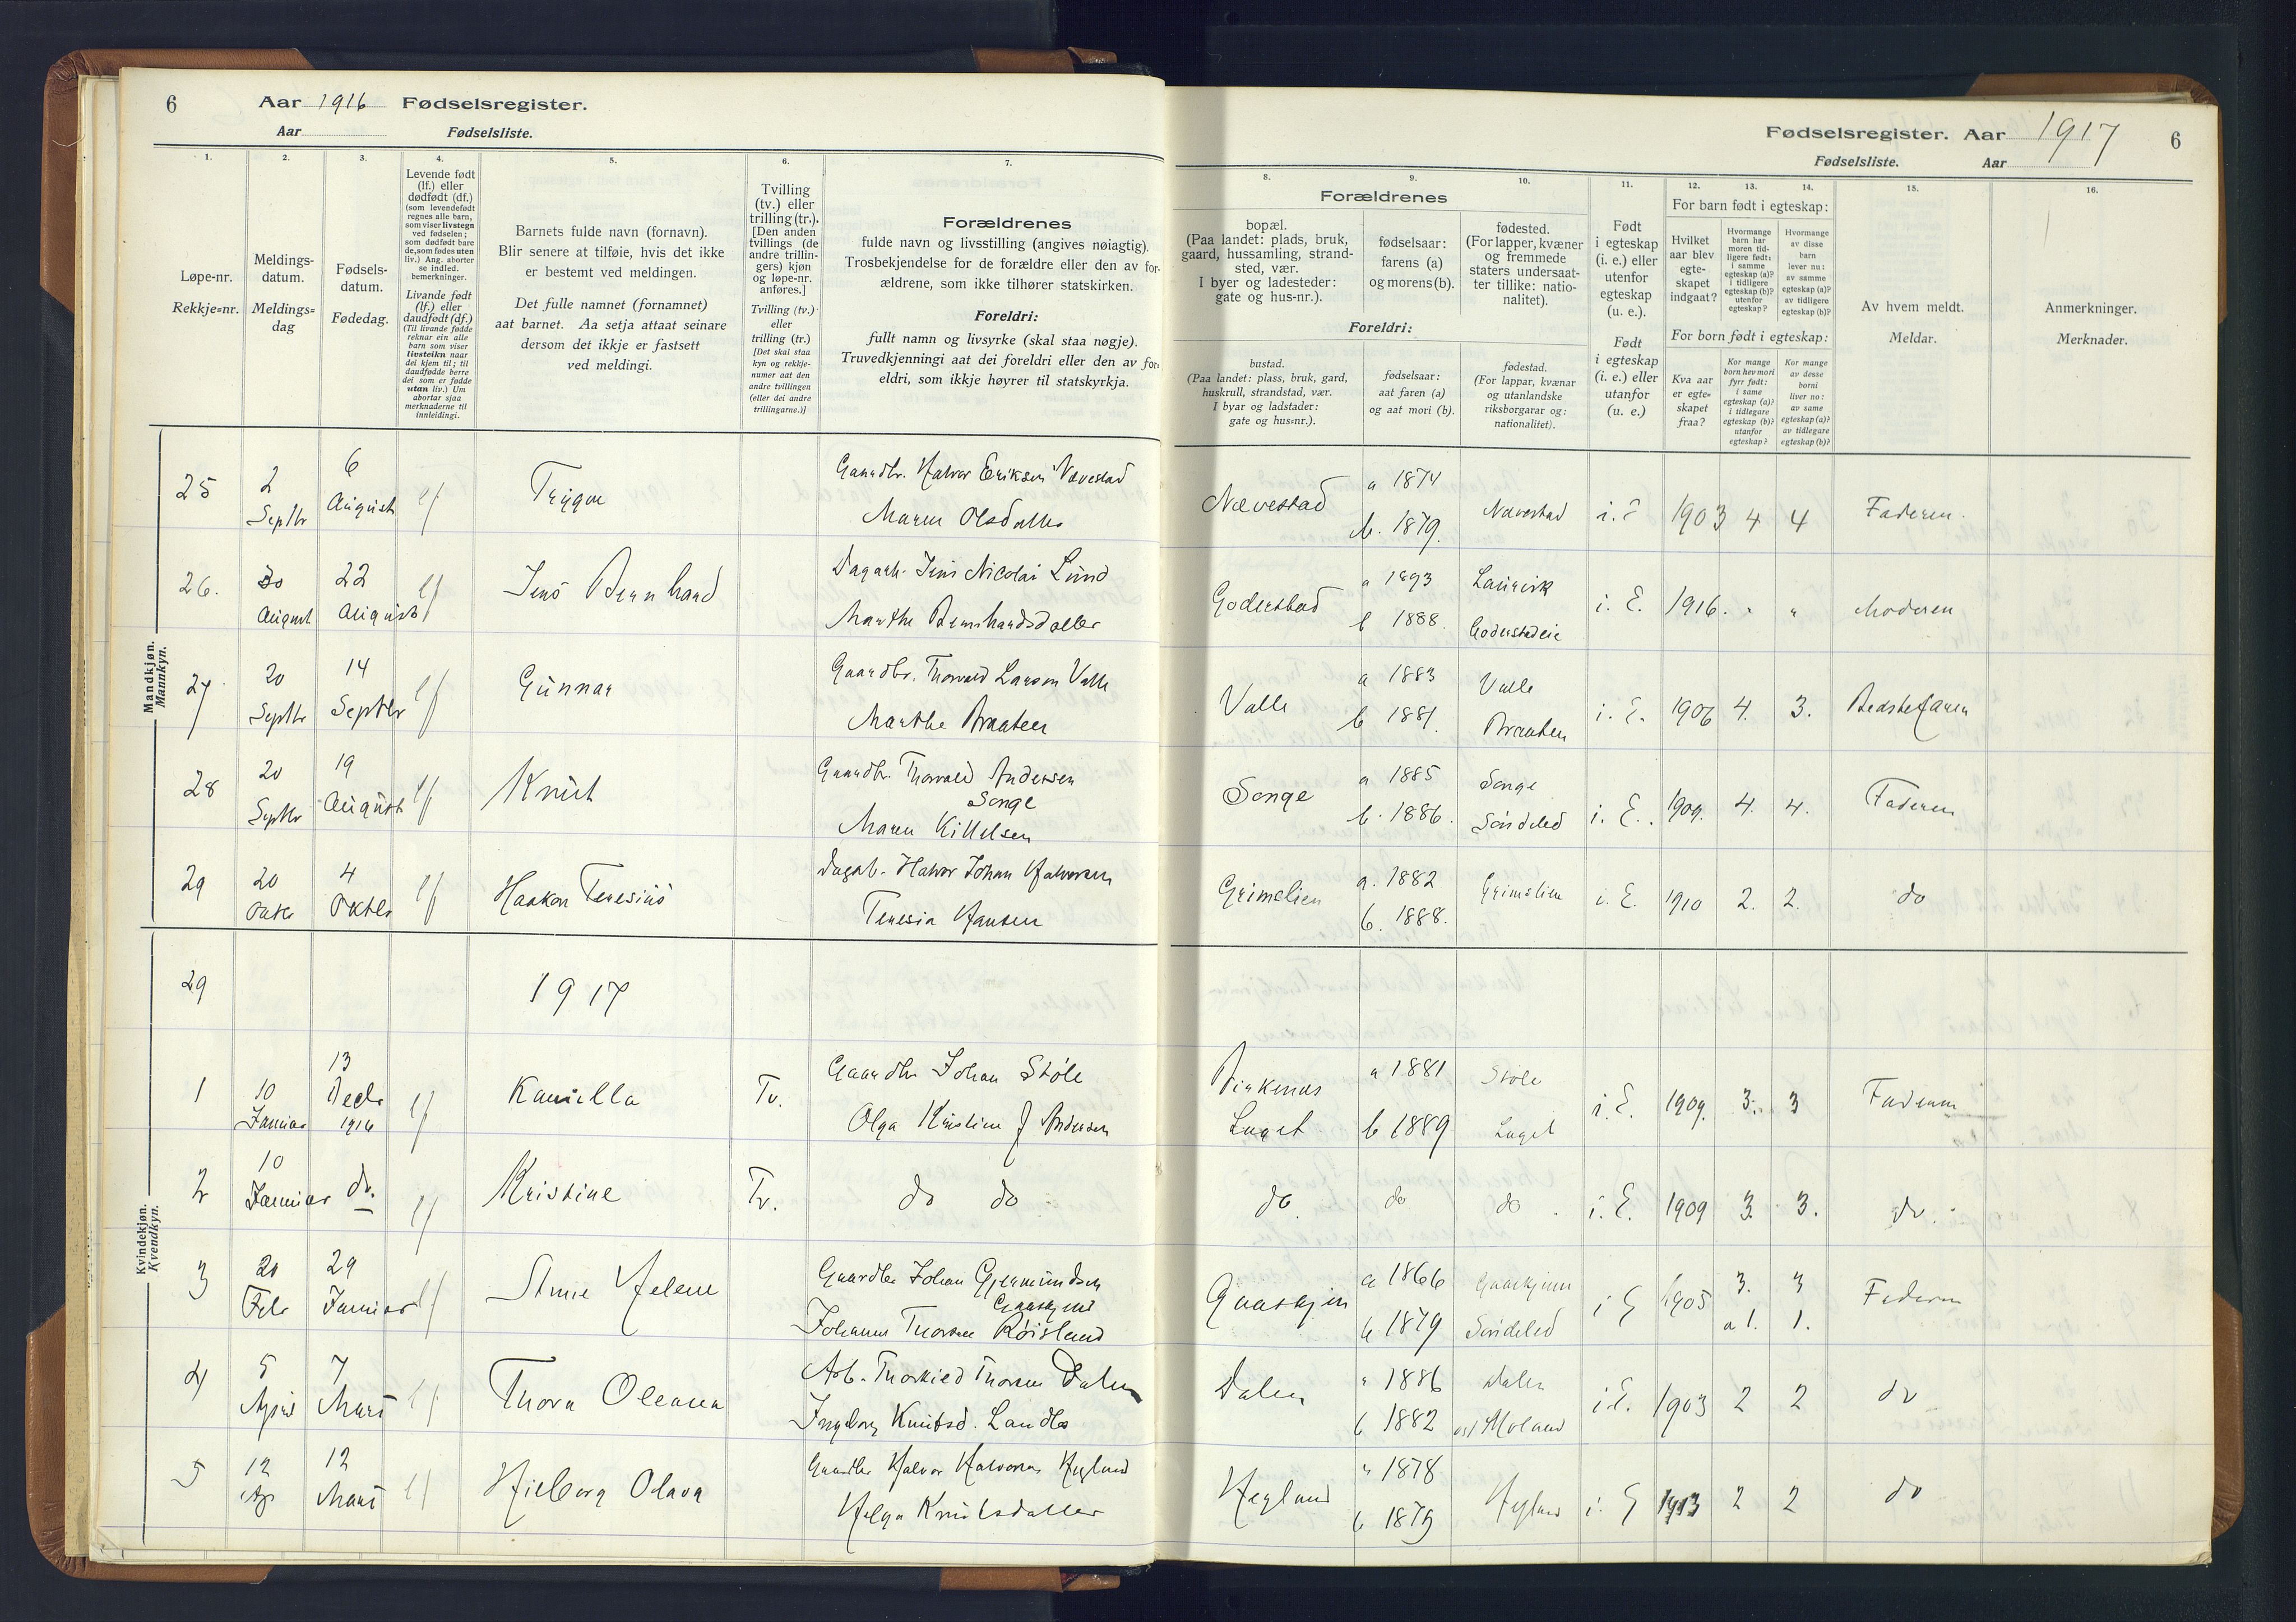 6 Aar 1916 Fødselsregister.
Aar Fødselsliste.
Fødselsregister. Aar 1917 6
Fødselsliste. Aar
1.
Løpe-nr.
Rekkje-nr.
2.
Meldings-
datum.
Meldings-
dag
3.
Fødsels-
datum.
Fødedag.
4.
Levende født
(lf.) eller
dødfødt (df.)
(som levendefødt
regnes alle barn,
som viser livstegn
ved fødselen;
som dødfødt bare
de, som fødes uten
liv.) Ang. aborter
se indled.
bemerkninger.
Livande født
(lf.) eller
daudfødt (df.)
(Til livande fødde
reknar ein alle
barn som viser
livsteikn naar
dei kjem til; til
daudfødde berre
dei som er fødde
utan liv.) Um
abortar sjaa
merknaderne til
innleidingi.
5.
Barnets fulde navn (fornavn).
Blir senere at tilføie, hvis det ikke
er bestemt ved meldingen.
Det fulle namnet (fornamnet)
aat barnet. Aa setja attaat seinare
dersom det ikkje er fastsett
ved meldingi.
6.
Tvilling
(tv.) eller
trilling (tr.).
[Den anden
tvillings (de
andre trillin-
gers) kjøn
og løpe-nr.
anføres.]
Tvilling (tv.)
eller
trilling (tr.)
[Det skal staa
kyn og rekkje-
numer aat den
andre tvillingen
(eller dei andre
trillingarne.)]
7.
Forældrenes
fulde navn og livsstilling (angives nøiagtig).
Trosbekjendelse for de forældre eller den av for-
ældrene, som ikke tilhører statskirken.
Foreldri:
fullt namn og livsyrke (skal staa nøgje).
Truvedkjenningi aat dei foreldri eller den av for-
eldri, som ikkje høyrer til statskyrkja.
8.
Forældrenes
bopæl.
(Paa landet: plads, bruk,
gaard, hussamling, strand-
sted, vær.
I byer og ladesteder:
gate og hus-nr.).
Foreldri:
bustad.
(Paa landet: plass, bruk, gard,
huskrull, strandstad, vær.
I byar og ladstader:
gate og hus-nr.).
9.
fødselsaar:
farens (a)
og morens (b).
fødselsaar:
aat faren (a)
og aat mori (b).
10.
fødested.
(For lapper, kvæner
og fremmede
staters undersaat-
ter tillike: natio-
nalitet).
fødestad.
(For lappar, kvænar
og utanlandske
riksborgarar og:
nationalitet).
11.
Født
i egteskap
(i. e.) eller
utenfor
egteskap
(u. e.).
Født
i egteskap
(i. e.) eller
utanfor
(u. e.)
12.
For barn født i egteskap:
Hvilket
aar blev
egte-
skapet
indgaat?
For born født i egteskap:
Kva aar
er egte-
skapet
fraa?
13.
Hvormange
barn har
moren tid-
ligere født:
i samme
egteskap (a)?
i tidligere
egteskap (b)?
utenfor
egteskap?
Kor mange
born hev mori
fyrr født:
i same
egteskap (a)?
i tidlegare
egteskap (b)?
utanfor
egteskap?
14.
Hvormange
av disse
barn
lever nu:
av samme
egteskap (a)?
av tidligere
egteskap (b)?
Kor mange
av desse
borni
liver no:
av same
egteskap (a)?
av tidlegare
egteskap (b)?
15.
Av hvem meldt.
Meldar.
16.
Anmerkninger.
Merknader.
Mandkjøn.
Mannkyn.
25 2 Septbr 6 August lf Trygve Gaardbr. Halvor Eriksen Nævestad
Maren Olsdatter
Nævestad a 1874 b. 1879. Nævestad i. E 1903 4 4 Faderen.
26. 30 August 22 August lf Jens Bernhard Dagarb. Jens Nicolai Lund
Marthe Bernhardsdatter
Goderstad a 1893 b 1888. Laurvik Goderstadeie i. E. 1916. " " Moderen
27 20 Septbr 14 Septbr lf Gunnar Gaardbr. Thorvald Larsen Valle
Marthe Braaten
Valle a 1883 b 1881. Valle Braaten i. E. 1906 4. 3. Bedstefaren
28 20 Septbr 19 August lf Knut Gaardbr. Thorvald Andersen
Songe
Maren Kittelsen
Songe a 1885 b. 1886. Songe Søndeled i. E. 1909. 4. 4. Faderen
29 20 Oktbr 4 Oktbr lf Haakon Teresius Dagarb. Halvor Johan Halvorsen
Teresia Hansen
Grimelien a. 1882 b. 1888. Grimelien i. E. 1910 2. 2. do
Kvindekjøn.
Kvendkyn.
29 1917
1 10 Januar 13 Decbr 1916 lf Kamilla Tv. Gaardbr Johan Støle
Olga Kristine f Andersen
Birkenes Laget a 1881 b 1889 Støle Laget i. E. 1909. 3. 3 Faderen
2 10 Januar do. lf Kristine Tv. do do
do. do do i. E. 1909 3. 3. do.
3 20 Febr 29 Januar lf Anne Helene Gaardbr Johan Gjermundsen
Johanne Thorsen Røisland
a 1866 b 1879 Søndeled i E 1905 3. a 1. 3 1. Faderen
4 5 April 7 Mars lf Thora Oleana Arb. Thorkild Thorsen Dalen
Ingeborg Knutsd.
Dalen " 1886 b 1882 Dalen i E. 1903 2 2 do
5 12 Ap 12 Mars lf Hjelborg Olava Gaardbr Halvor Halvorsen Hegland
Helga Knutsdatter
Hegland " 1878 b 1879 Hegland i. E 1913 2 2 do